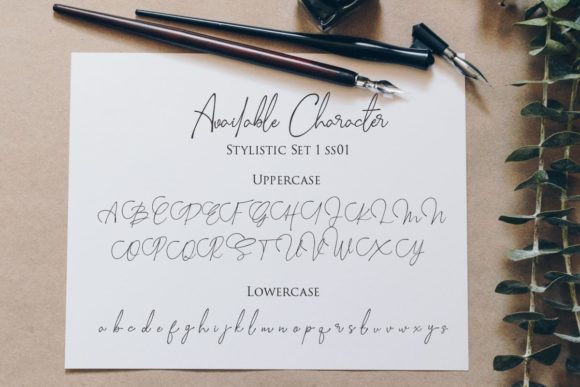 Available Character
Stylistic Set 1 ss01
Uppercase
A B C D E F G H I J K L M N
O P Q R S T U V W X Y
Lowercase
a b c d e f g h i j k l m n o p q r s t u v w x y z